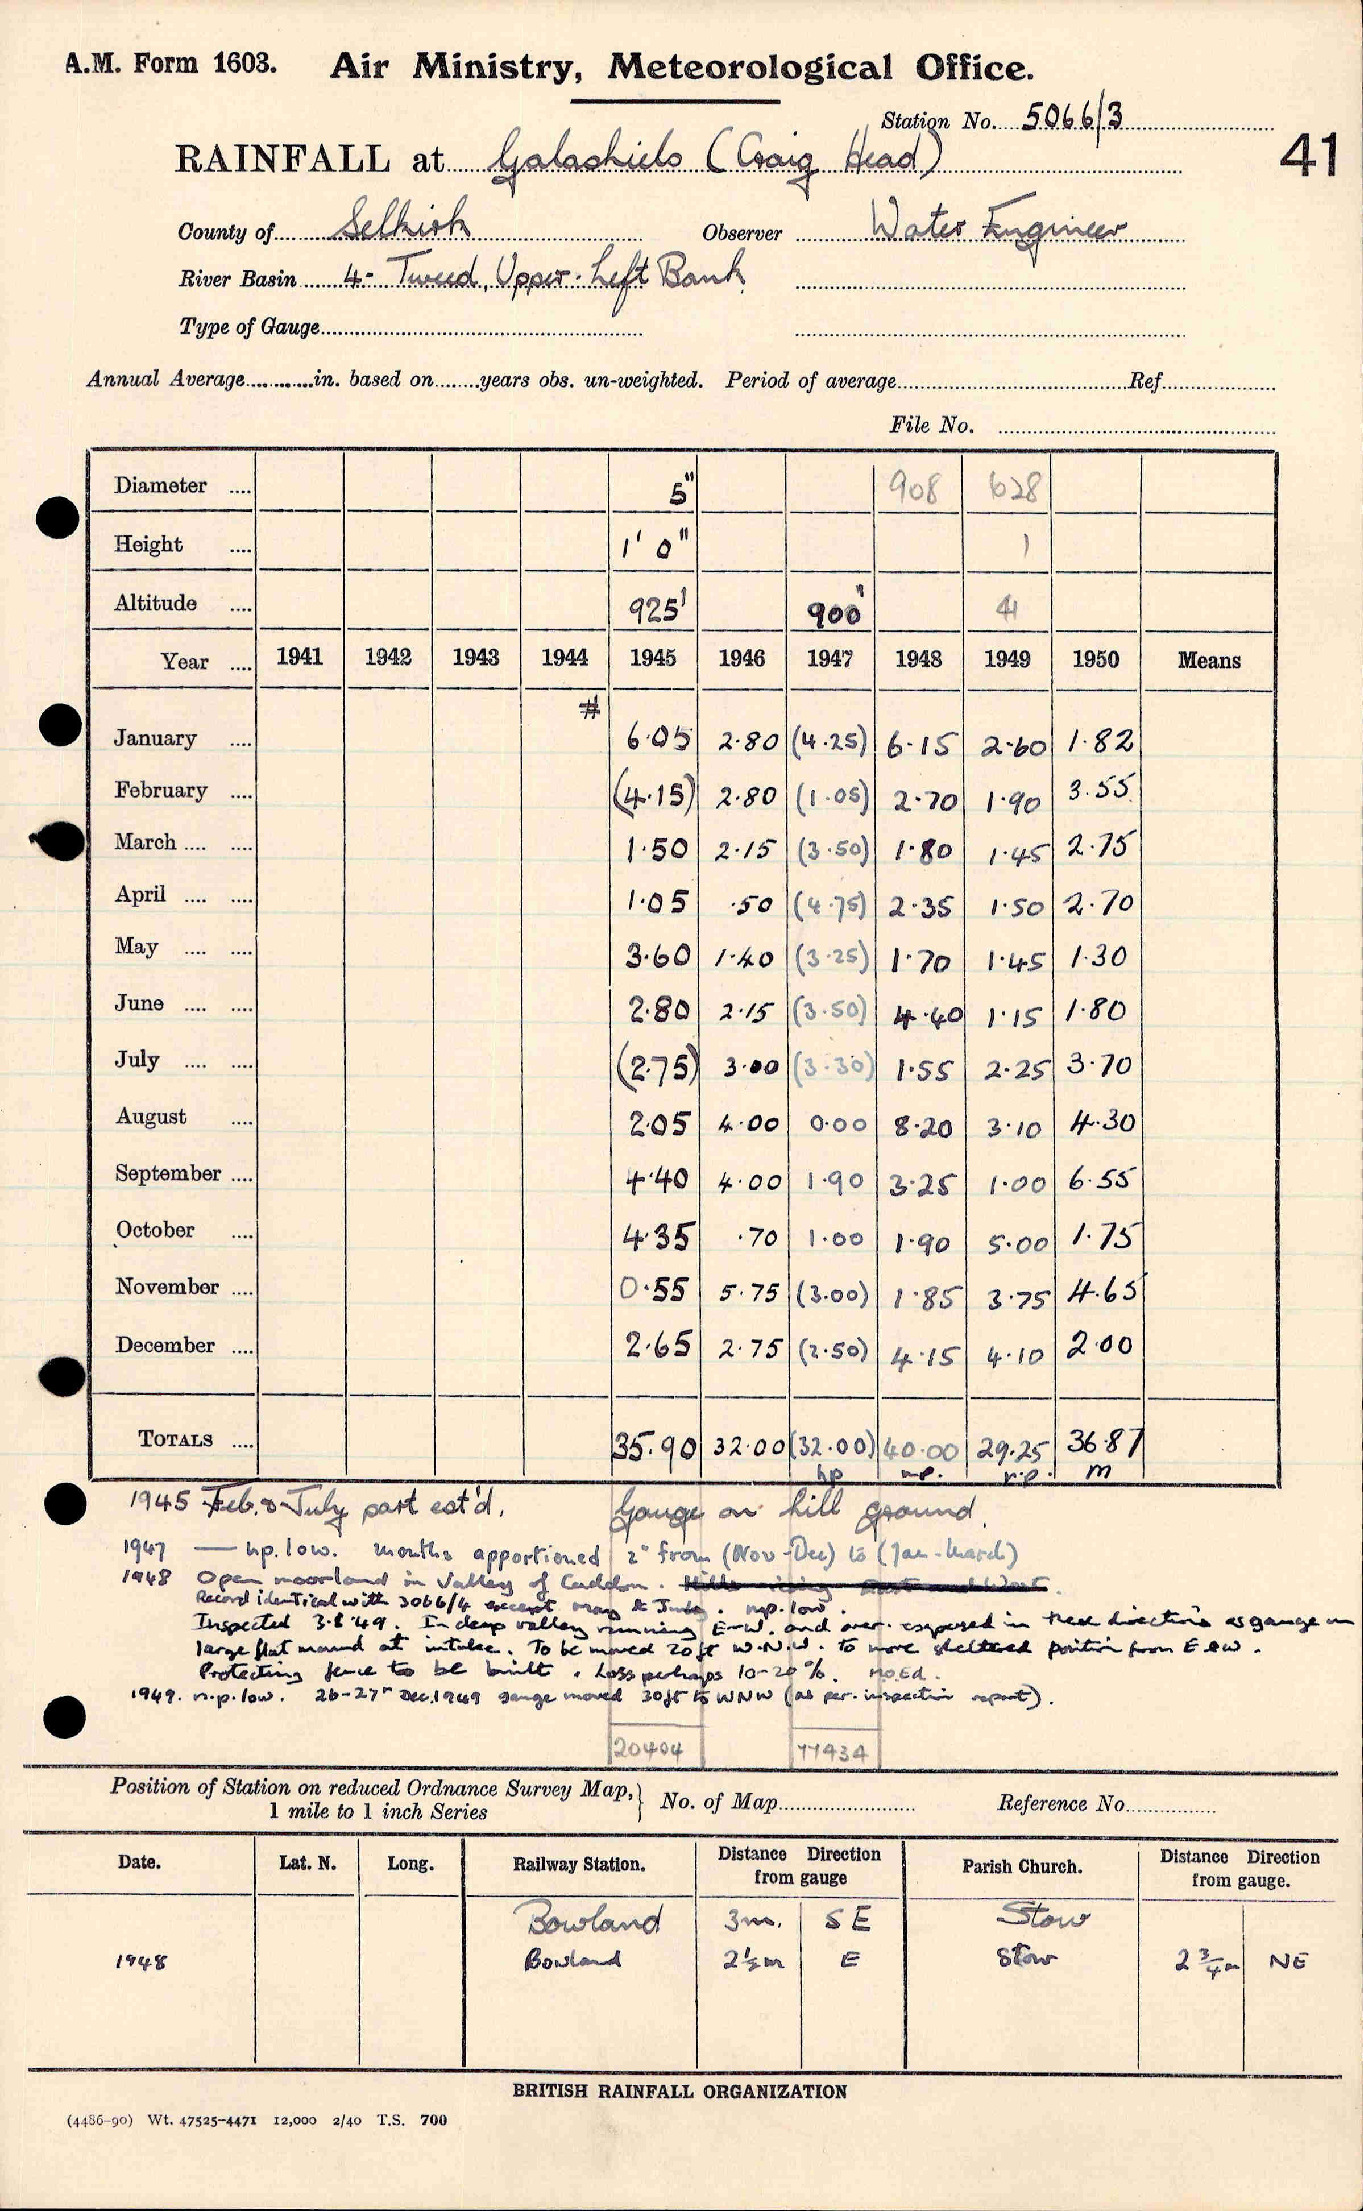 A.M. Form 1603. Air Ministry, Meteorological Office.
Station No. 5066/3
41
RAINFALL at Galashiels (Craig Head)
County of Selkirk Observer Water Engineer
River Basin 4- Tweed, Upper. Left Bank
Type of Gauge
Annual Average in. based on years obs. un-weighted. Period of average Ref.
File No.
Diameter .... 5" 908 628
Height .... 1' 0" 1
Altitude .... 925' 900' 41
Year .... 1941 1942 1943 1944 1945 1946 1947 1948 1949 1950 Means
#
January .... 6.05 2.80 (4.25) 6.15 2.60 1.82
February .... (4.15) 2.80 (1.05) 2.70 1.90 3.55
March .... .... 1.50 2.15 (3.50) 1.80 1.45 2.75
April .... .... 1.05 .50 (4.75) 2.35 1.50 2.70
May .... .... 3.60 1.40 (3.25) 1.70 1.45 1.30
June .... .... 2.80 2.15 (3.50) 4.40 1.15 1.80
July .... .... (2.75) 3.00 (3.30) 1.55 2.25 3.70
August .... 2.05 4.00 0.00 8.20 3.10 4.30
September .... 4.40 4.00 1.90 3.25 1.00 6.55
October .... 4.35 .70 1.00 1.90 5.00 1.75
November .... 0.55 5.75 (3.00) 1.85 3.75 4.65
December .... 2.65 2.75 (2.50) 4.15 4.10 2.00
TOTALS .... 35.90 32.00 (32.00) 40.00 29.25 36.87
hp n.p. n.p. m
1945 Feb. & July part est'd. Gauge on hill ground.
1947 — n.p. low. months apportioned 2" from (Nov-Dec) to (Jan-March)
1948 Open moorland in Valley of Caddon.
Record identical with 3066/4 except May & July. n.p. low.
Inspected 3.8.49. In deep valley running E-W. and over exposed in these directions as gauge on
large flat mound at intake. To be moved 20ft W.N.W. to more sheltered position from E & W.
Protecting fence to be built. Loss perhaps 10-20%.
1949. n.p. low. 26-27" Dec. 1949 gauge moved 30ft to WNW (as per. inspection report).
20404 77934
Position of Station on reduced Ordnance Survey Map, 1 mile to 1 inch Series } No. of Map Reference No.
Date. Lat. N. Long. Railway Station. Distance Direction from gauge Parish Church. Distance Direction from gauge.
Bowland 3m. S E Stow
1948 Bowland 2½m E Stow 2¾m NE
BRITISH RAINFALL ORGANIZATION
(4486-90) Wt. 47525-4471 12,000 2/40 T.S. 700